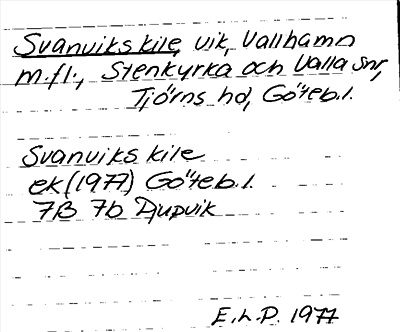 Svanviks kile, vik, Vallhamn
m.fl., Stenkyrka och Valla snr,
Tjörns hd, Göteb.l.
Svanviks kile
ek (1977) Göteb.l.
7B 7b Djupvik
E.L.P. 1977